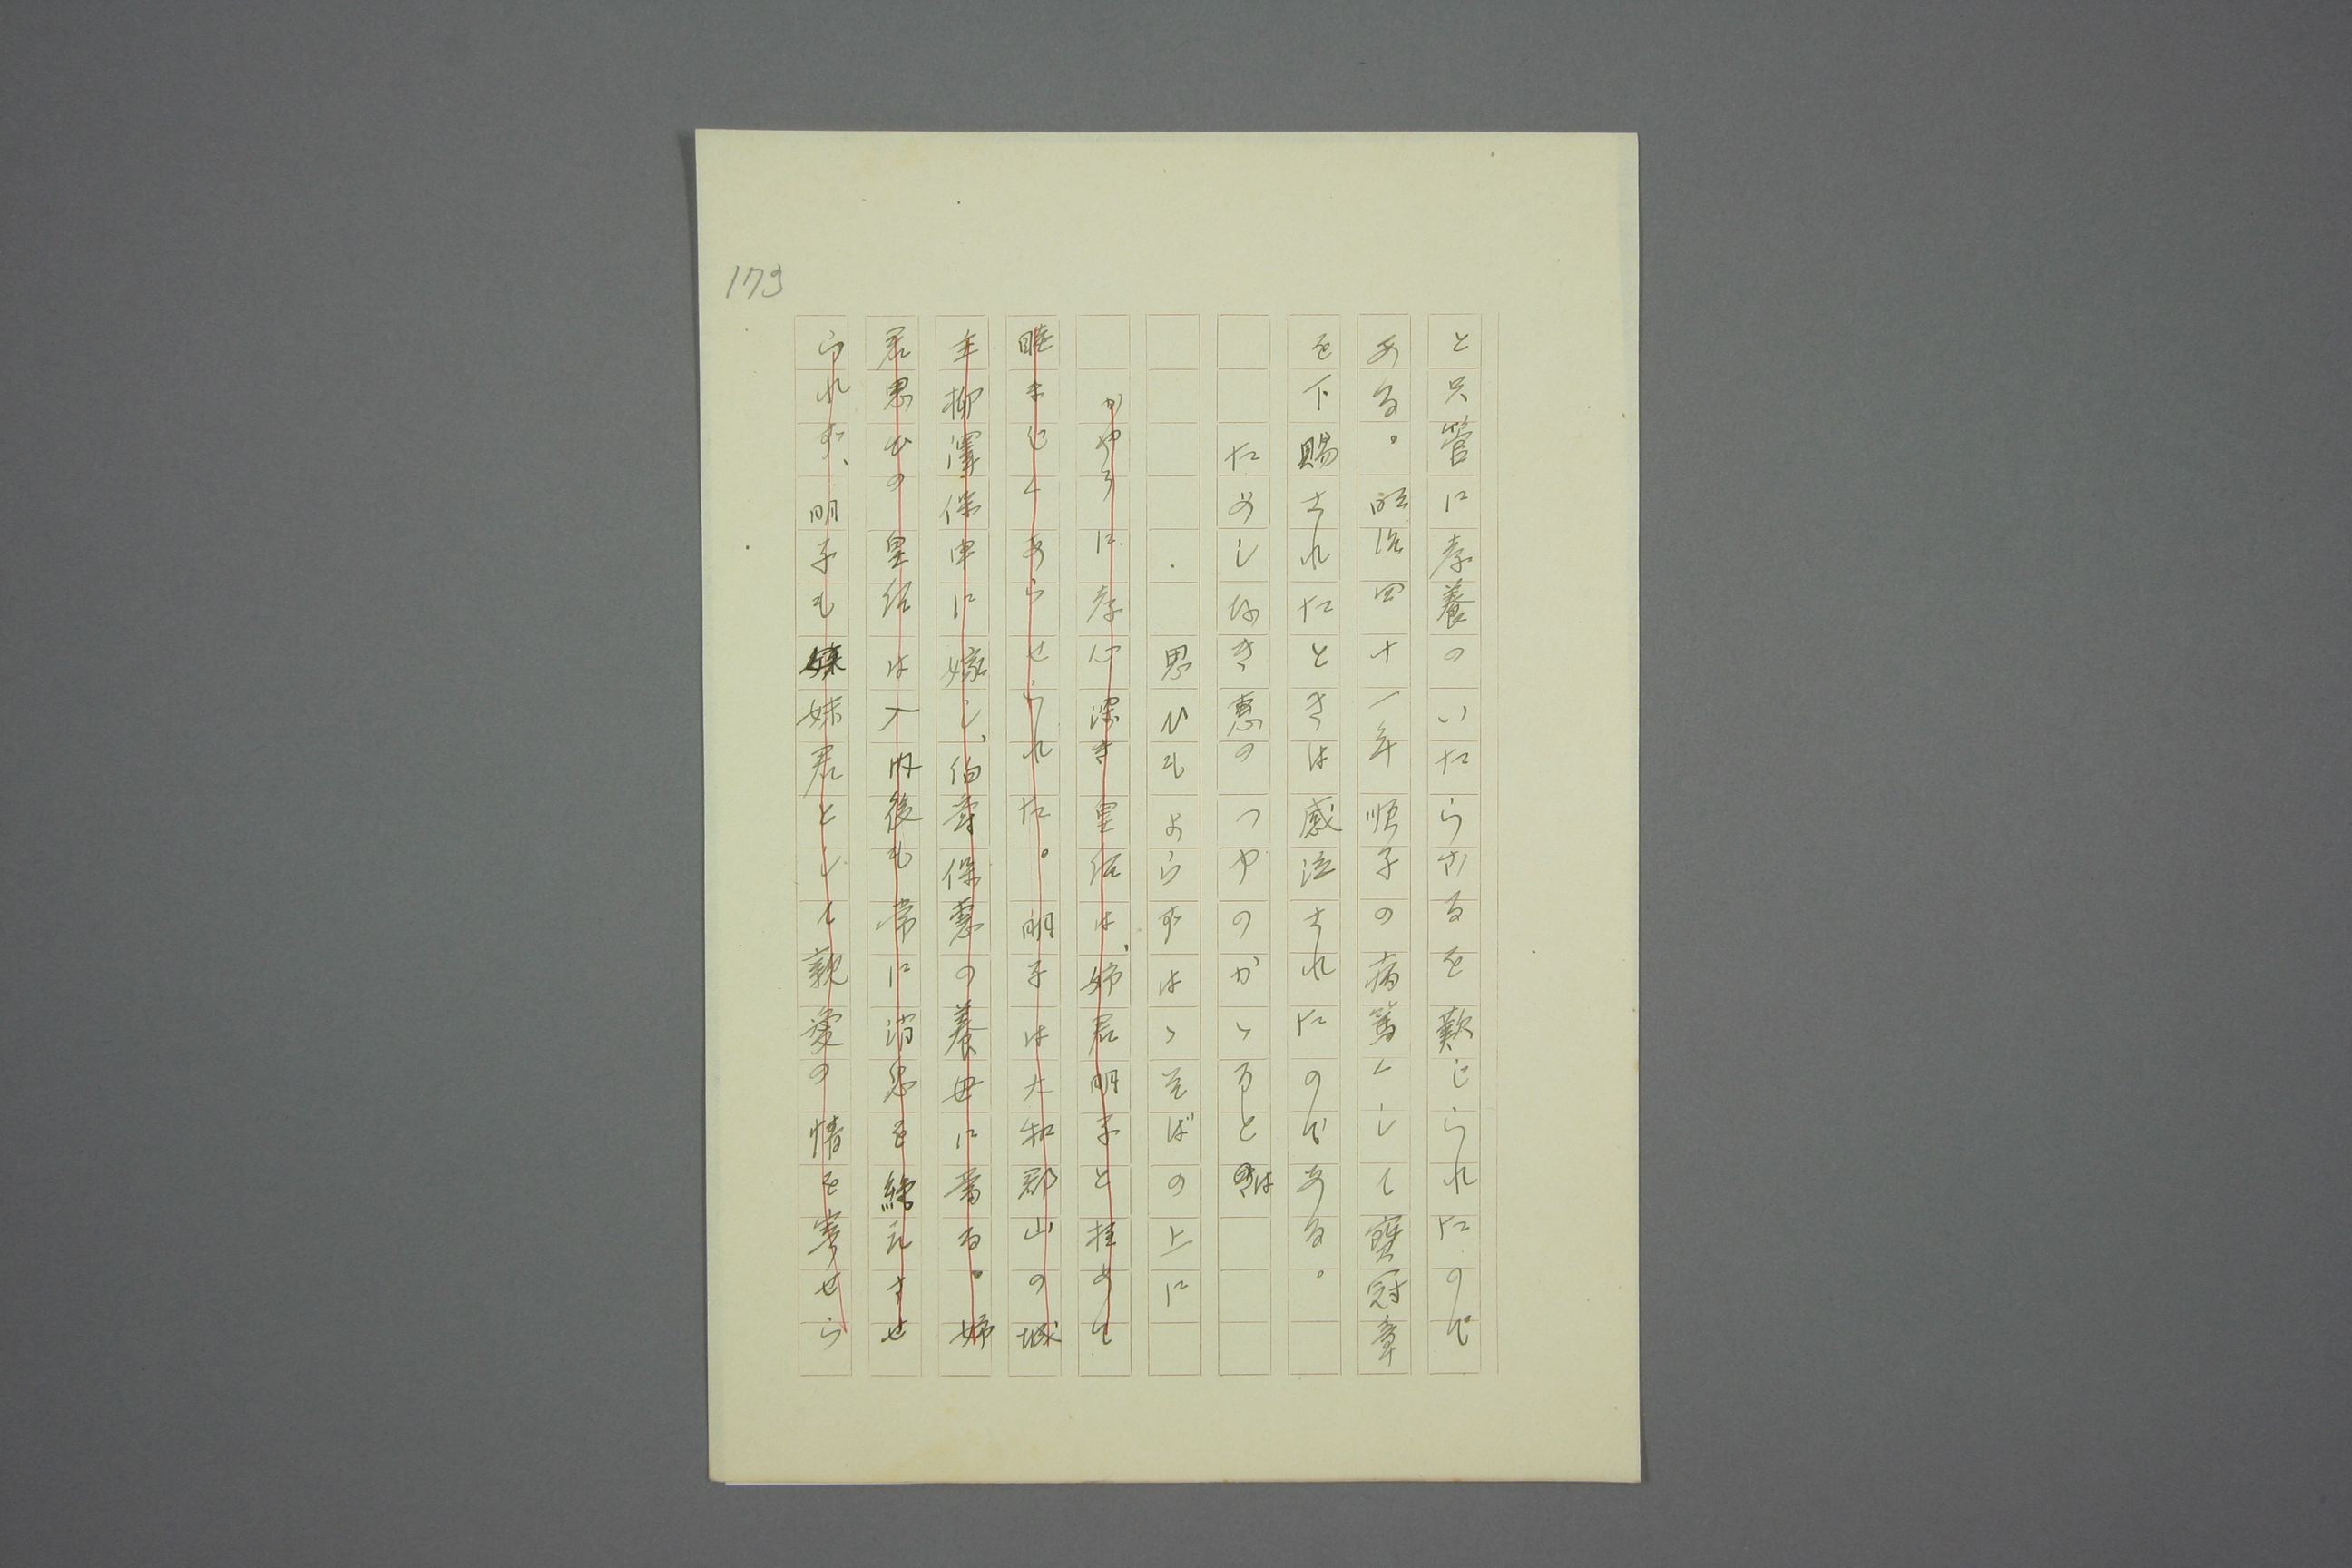 173
と只管に孝養のいたらさるを歎じられたので
ある。明治四十一年順子の病篤くして寶冠章
を下賜されたときは感泣されたのである。
ためしなき惠のつやのかゝるとは
思ひもよらずはゝそばの上に
かやうに孝心深き皇后は、姉君明子と極めて
睦まじくあらせられた。明子は大和郡山の城
主柳澤保申に嫁し、伯爵保惠の養母に當る。姉
君思ひの皇后は入内後も常に消息を絶えさせ
られず、明子も妹君として親愛の情を寄せら